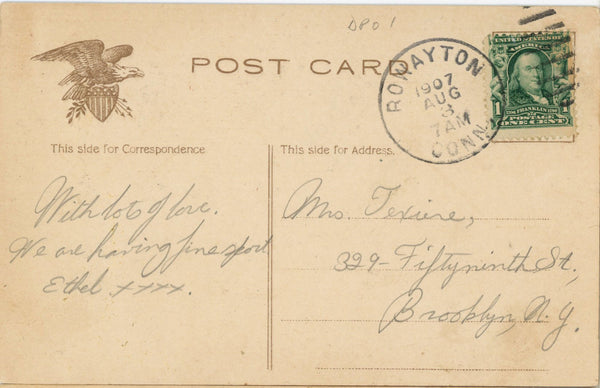 DPO 1
POST CARD
ROWAYTON
1907
AUG
3
7AM
CONN.
UNITED STATES OF
AMERICA
1 FRANKLIN 1
POSTAGE
ONE CENT
This side for Correspondence
This side for Address.
With lots of love.
We are having fine sport
Ethel xxxx.
Mrs. Texiere,
329- Fiftyninth St.,
Brooklyn, N.Y.